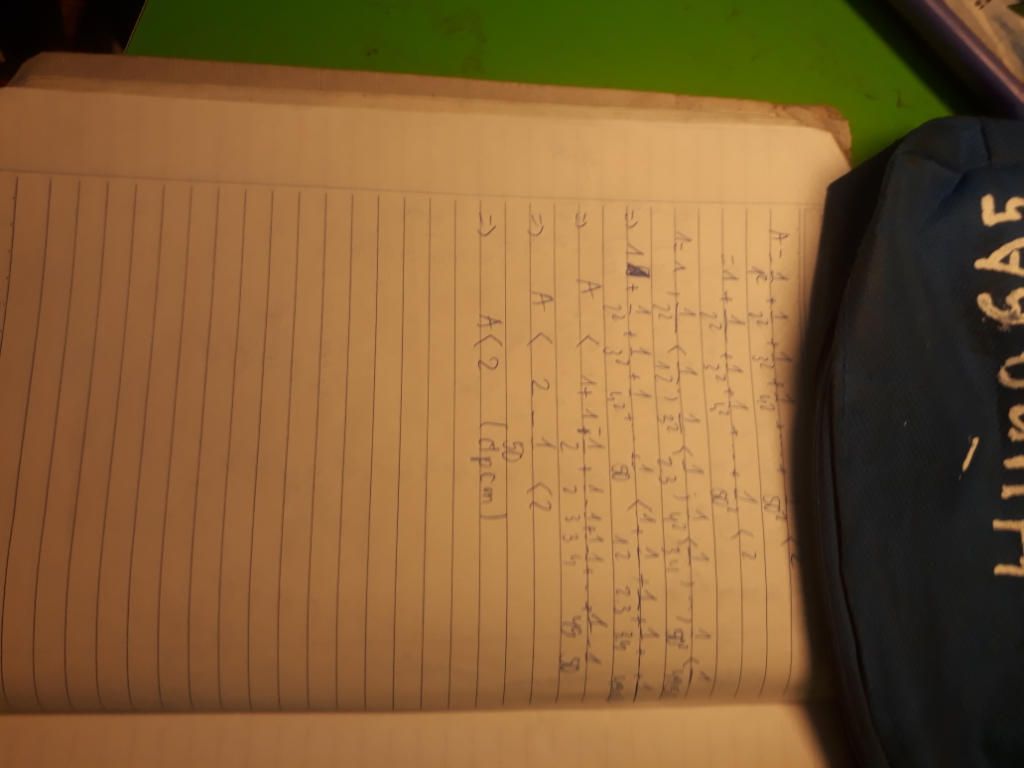 A = 1/1² + 1/2² + 1/3² + 1/4² + ... + 1/50² < 2
= 1 + 1/2² + 1/3² + 1/4² + ... + 1/50² < 2
1 = 1, 1/2² < 1/1.2, 1/3² < 1/2.3, 1/4² < 1/3.4, ..., 1/50² < 1/49.50
=> 1 + 1/2² + 1/3² + 1/4² + ... 1/50 < 1 + 1/12 + 1/23 + 1/34 + ... + 1/49.50
=> A < 1 + 1 - 1/2 + 1/2 - 1/3 + 1/3 - 1/4 + ... + 1/49 - 1/50
=> A < 2 - 1/50 < 2
=> A < 2 (đpcm)